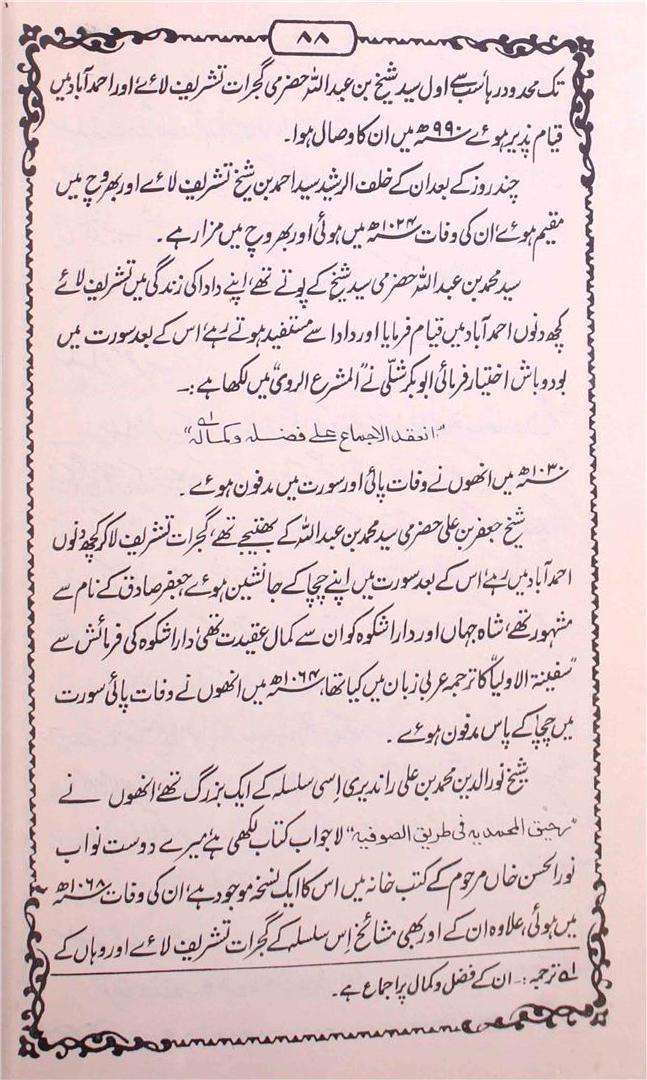 ۸۸
تک محدود رہا سب سے اول سید شیخ بن عبداللہ حضرمی گجرات تشریف لائے اور احمد آباد میں
قیام پذیر ہوئے ۹۹۰ھ میں ان کا وصال ہوا۔
چند روز کے بعد ان کے خلف الرشید سید احمد بن شیخ تشریف لائے اور بھروچ میں
مقیم ہوئے، ان کی وفات ۱۰۲۴ھ میں ہوئی اور بھروچ میں مزار ہے۔
سید محمد بن عبداللہ حضرمی سید شیخ کے پوتے تھے، اپنے دادا کی زندگی میں تشریف لائے
کچھ دنوں احمد آباد میں قیام فرمایا اور دادا سے مستفید ہوتے رہے، اس کے بعد سورت میں
بود و باش اختیار فرمائی ابوبکر شلّی نے "المشرع الروی" میں لکھا ہے:۔
"انعقد الاجماع علی فضلہ وکمالہ" ۱ے
۱۰۳۰ھ میں انھوں نے وفات پائی اور سورت میں مدفون ہوئے۔
شیخ جعفر بن علی حضرمی سید محمد بن عبداللہ کے بھتیجے تھے، گجرات تشریف لا کر کچھ دنوں
احمد آباد میں رہے، اس کے بعد سورت میں اپنے چچا کے جانشین ہوئے، جعفر صادق کے نام سے
مشہور تھے، شاہ جہاں اور دارا شکوہ کو ان سے کمال عقیدت تھی، دارا شکوہ کی فرمائش سے
"سفینۃ الاولیا" کا ترجمہ عربی زبان میں کیا تھا، ۱۰۶۴ھ میں انھوں نے وفات پائی سورت
میں چچا کے پاس مدفون ہوئے۔
شیخ نورالدین محمد بن علی راندیری اسی سلسلہ کے ایک بزرگ تھے، انھوں نے
"رحیق المحمدیہ فی طریق الصوفیہ" لاجواب کتاب لکھی ہے، میرے دوست نواب
نورالحسن خاں مرحوم کے کتب خانہ میں اس کا ایک نسخہ موجود ہے، ان کی وفات ۱۰۶۸ھ
میں ہوئی، علاوہ ان کے اور بھی مشائخ اس سلسلہ کے گجرات تشریف لائے اور وہاں کے
۱ے ترجمہ:۔ ان کے فضل و کمال پر اجماع ہے۔